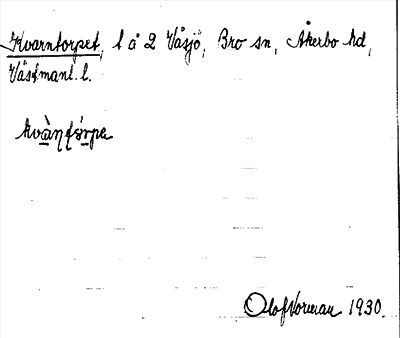 Kvarntorpet, l å 2 Våsjö, Bro sn, Åkerbo hd,
Västmanl. l.
kvà̱ṇtó̱rpe
Olof Norman 1930.